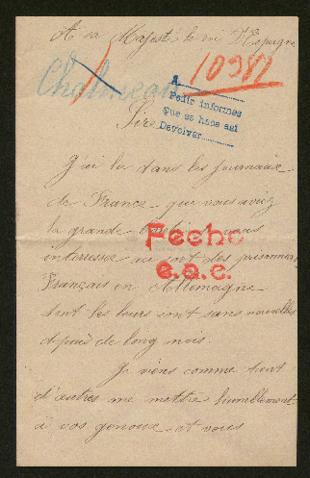 A sa Majesté le roi d'Espagne
10581
A
Pedir informes
Que se hace así
Devolver
Sire
J'ai lu dans les journaux
de France que vous aviez
la grande vous
interresser au sort des prisonniers
Fecho
e.a.c.
Français en Allemagne
dont les leurs sont sans nouvelles
depuis de long mois.
Je viens comme tant
d'autres me mettre humblement
à vos genoux et vous